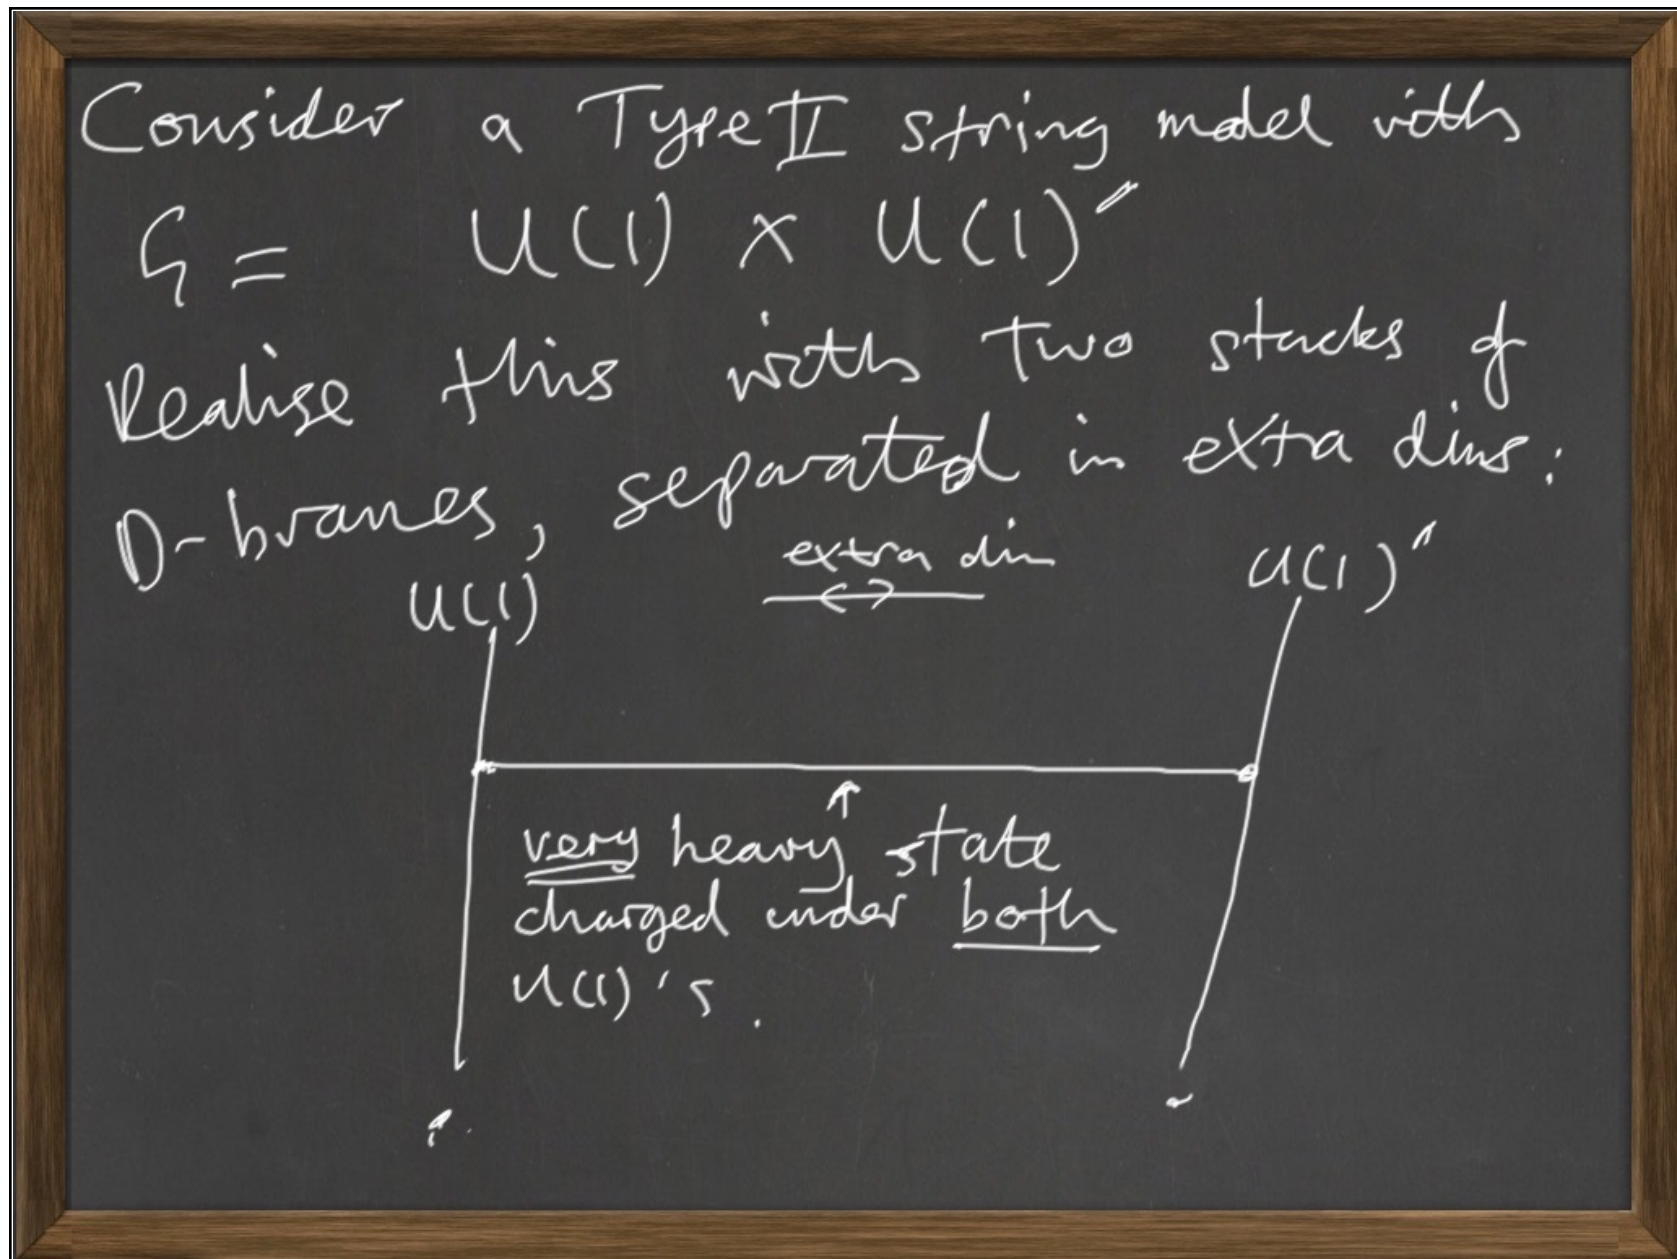 Consider a Type II string model with
G = U(1) × U(1)'
Realise this with two stacks of
D-branes, separated in extra dims.
extra dim
U(1) U(1)'
very heavy state
charged under both
U(1)'s.